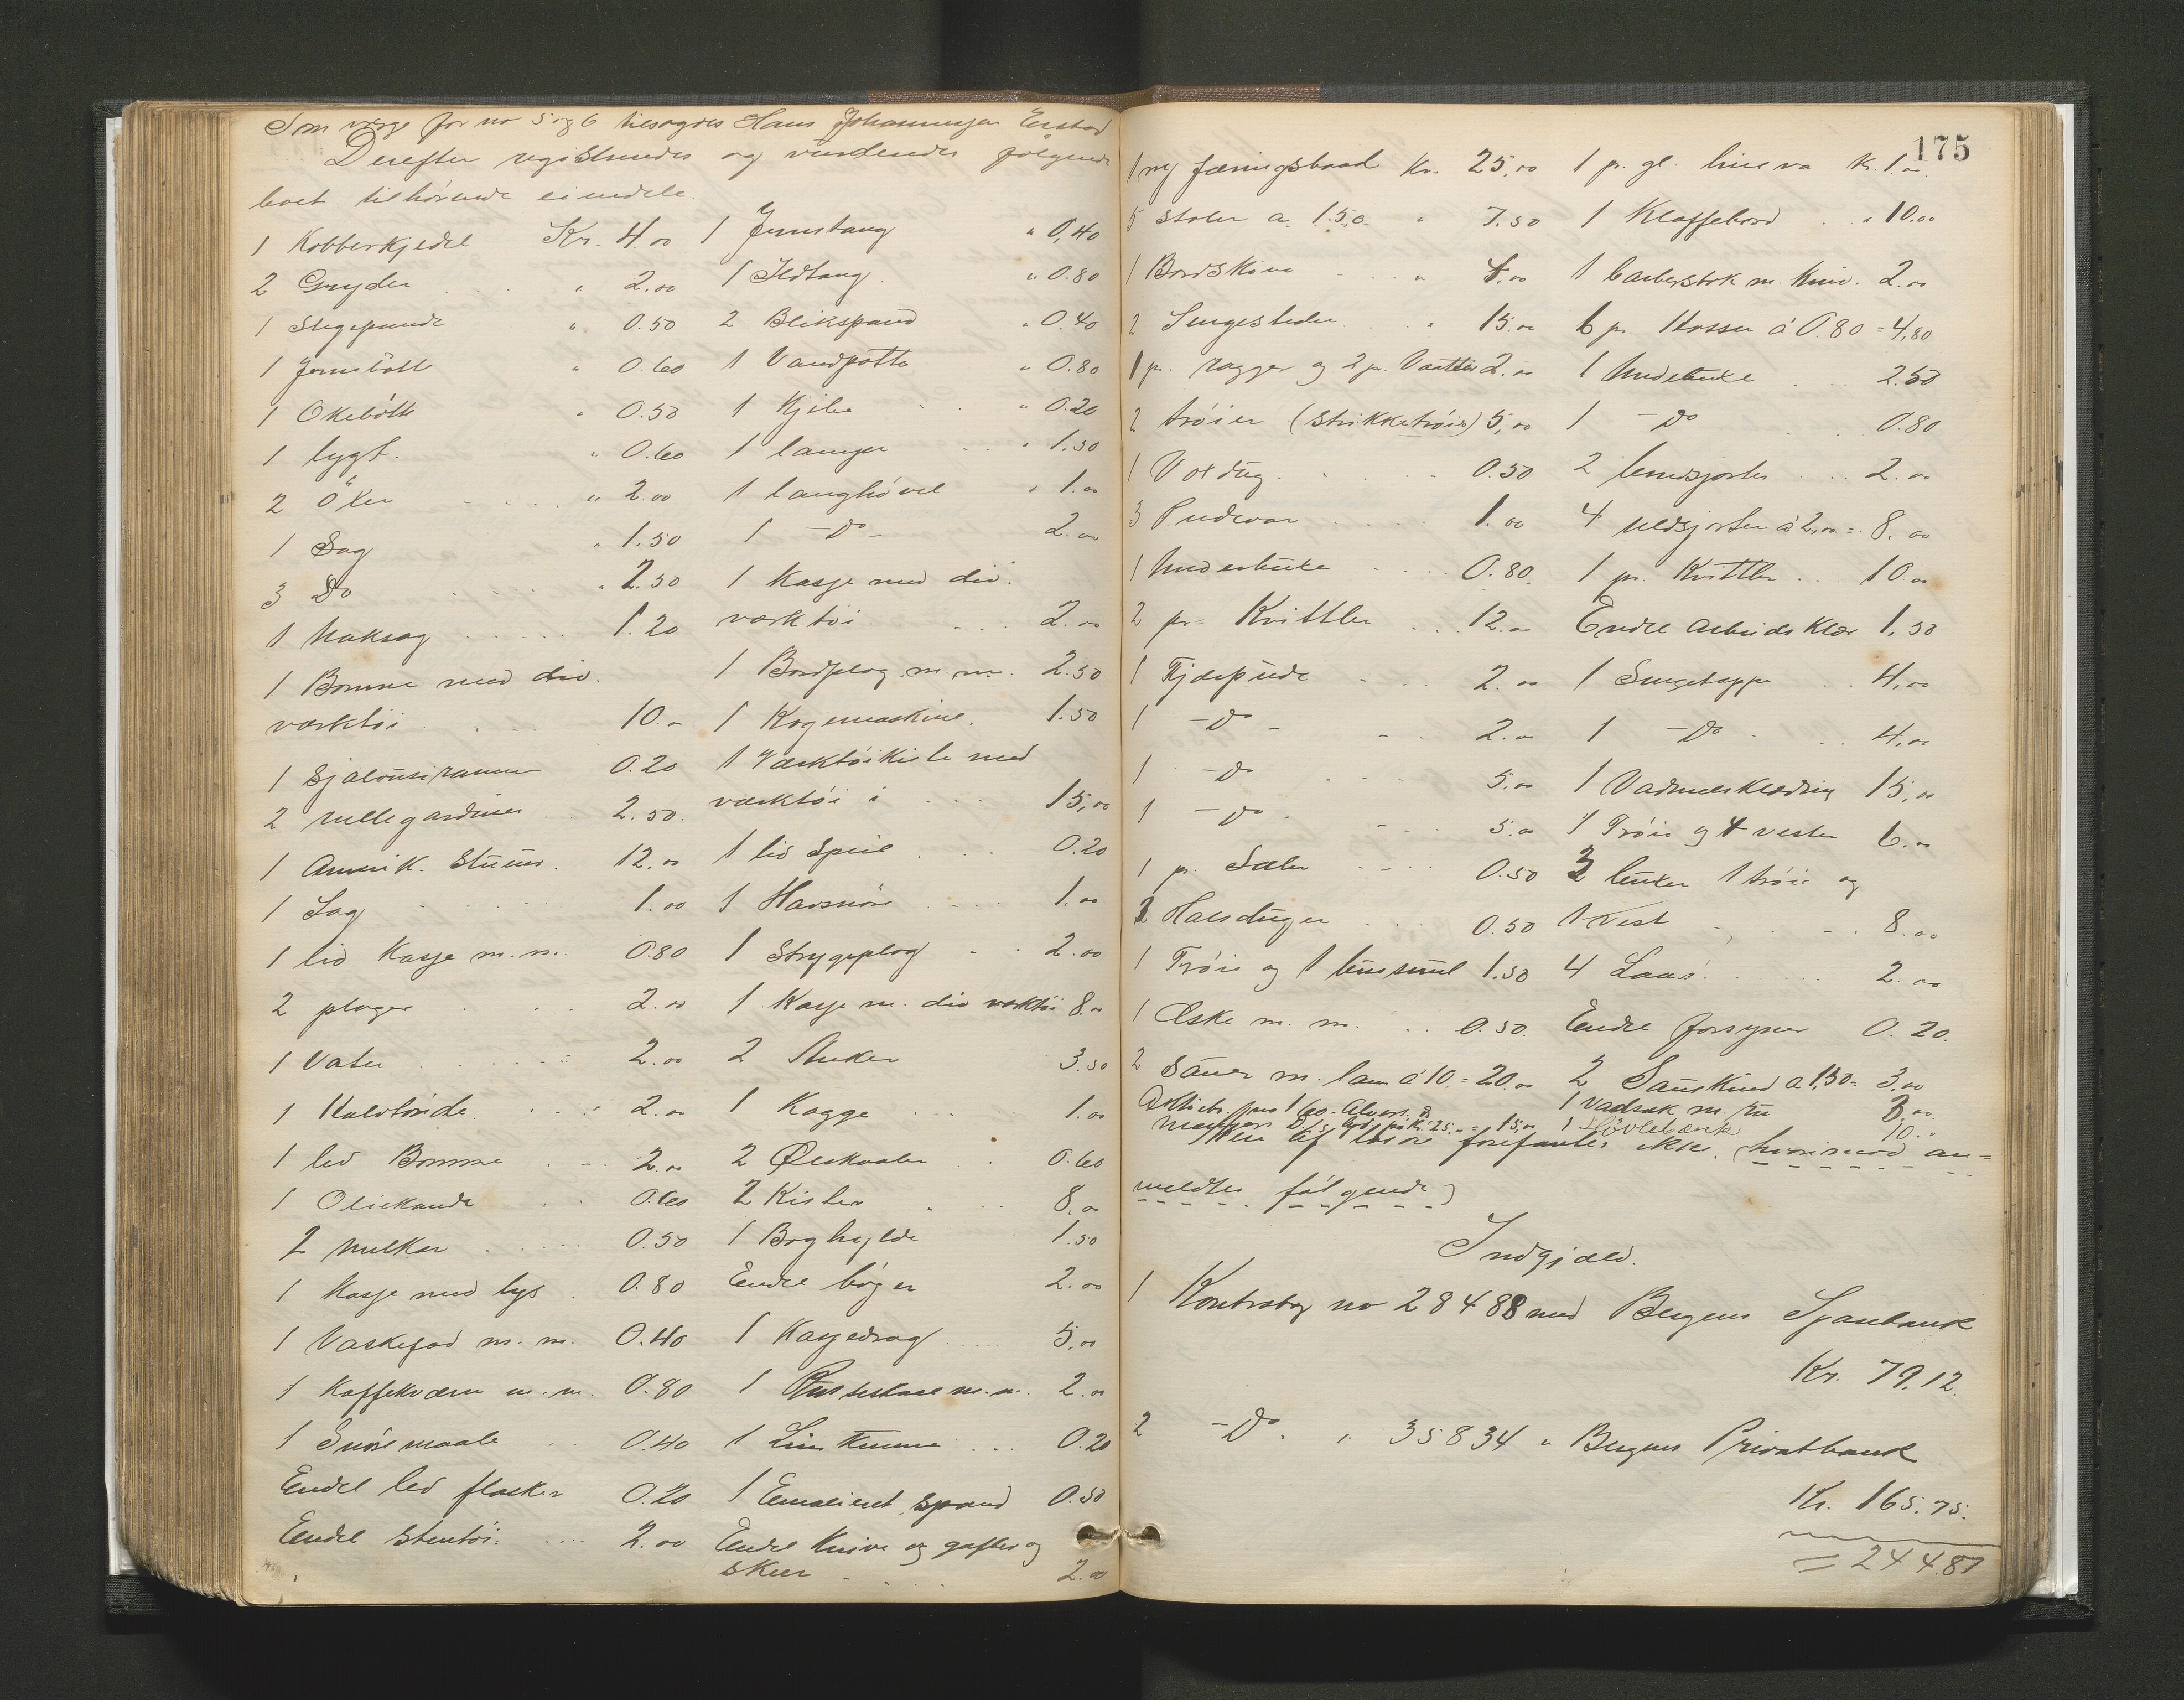 Som værge for no 5 og 6 tilsagdes Hans Johannesen Erstad
Derefter registreredes og vurderedes følgende
boet tilhørende eiendele.
1 Kobberkjedel Kr. 4.00
2 Gryder " 2.00
1 Stegepande " 0.50
1 Jernbøtt " 0.60
1 Økebøtte " 0.50
1 lygt. " 0.60
2 Öxer " 2.00
1 Sag " 1.50
3 Do " 2.50
1 haksag 1.20
1 Bomme med div.
værktöi 10.00
1 Sjalousiramme 0.20
2 rullegardiner 2.50.
1 Amerik. Stueur. 12.00
1 Sag 1.00
1 lid Kasse m.m. 0.80
2 ploger 2.00
1 Vater 2.00
1 Kaldtönde 2.00
1 led Bomme 2.00
1 Oliekande 0.60
2 hulkar 0.50
1 Kasse med lys 0.80
1 Vaskefad m.m. 0.40
1 Kaffekværn m.m. 0.80
1 Snöremaale 0.40
Endel led flasker 0.20
Endel stentöi. 2.00
1 Jernstang " 0,40
1 Ildtang " 0.80
2 Blikspand " 0.40
1 Vandpotte " 0.80
1 Kjile " 0.20
1 lampe " 1.50
1 langhövel " 1.00
1 -Do- 2.00
1 Kasse med div.
værktöi 2.00
1 Bordplog m.m. 2.50
1 Kogemaskine. 1.50
1 Værktöikiste med
værktöi i 15,00
1 lid Speil 0.20
1 Havsnöre 1.00
1 Strygeplog 2.00
1 Kasse m. div værktöi 8.00
2 Anker 3.50
1 Kagge 1.00
2 Ölskaaler 0.60
2 Kister 8.00
1 Boghylde 1.50
Endel böger 2.00
1 Kassedrag 5.00
1 m.m. 2.00
1 Limkumme 0.20
1 Emalieret spand 0.50
Endel Knive og gafler og
skeer 2.00
175
1 ny færingsbaad Kr. 25,00
5 stoler a 1.50 " 7.50
1 Bordskive " 4.00
2 Sengesteder " 15.00
1 pr. ragger og 2 pr. Vaatter 2.00
2 tröier (strikketröie) 5,00
1 Voxdug 0.50
3 Pudevar 1.00
1 Underbuxe 0.80.
2 pr. Kvittler 12.00
1 Fjærpude 2.00
1 -Do- 2.00
1 -Do 5.00
1 -Do- 5.00
1 pr. Sæler 0.50
2 Halsduger 0.50
1 Tröie og 1 1.50
1 Æske m.m. 0.50.
2 Sauer m. lam á 10. = 20.00
1 p. gl. Kr. 1.00
1 Klaffebord " 10.00
1 barberstok m. Kniv. 2.00
6 pr. Hosser á 0.80 = 4,80
1 Underbuxe 2.50
1 -Do 0.80
2 lerredsjorter 2.00
4 uldsjorter á 2,00 = 8.00
1 pr. Kvittler 10.00
Endel Arbeidsklær 1.50
1 Sengetæppe 4,00
1 -Do 4,00
1 Vadmelsklædning 15,00
1 Tröie og 4 vester 6.00
3 buxer 1 tröie og
1 Vest 8.00
4 Laas 2.00
Endel forsyner 0.20.
2 Saueskind a 1,50 = 3,00
1 vadsæk m. 3,00
1 Hövlebænk 10."
Mere af lösöre forefantes ikke. (hvorimod an=
meldtes fölgende)
Indgjæld.
1 Kontrabog no 28488 med Bergens Sparebank
Kr. 79.12.
2 -Do. " 35834 " Bergens Privatbank
Kr. 165.75.
= 244.87